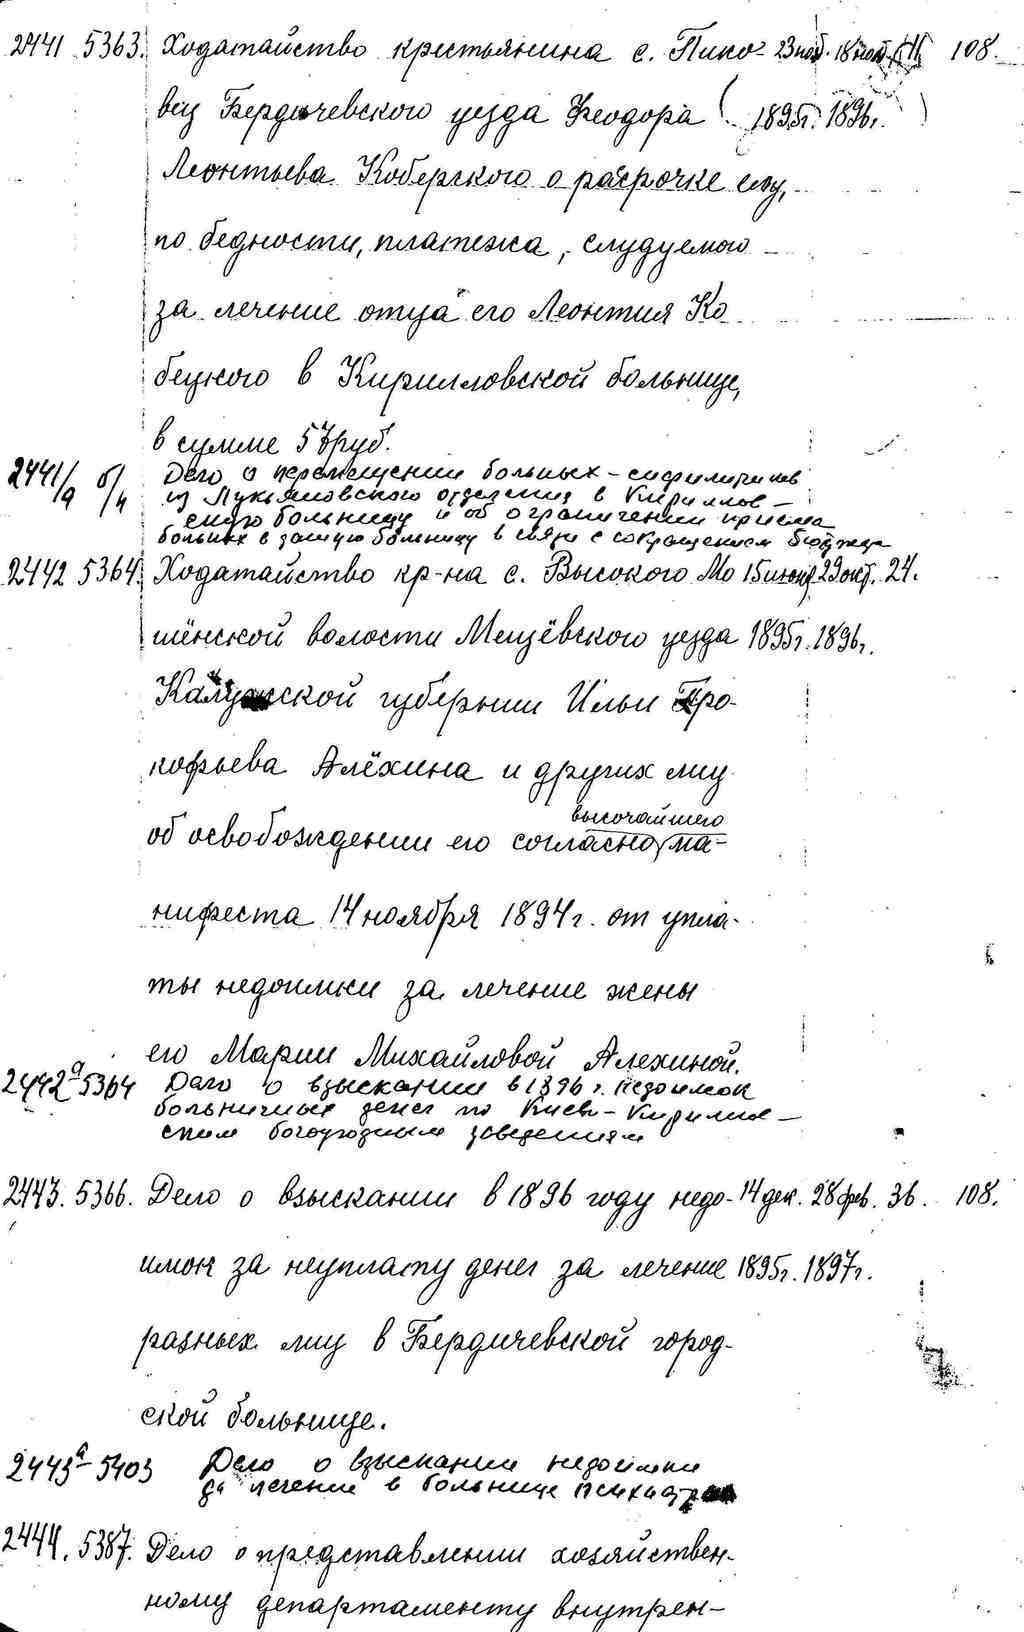 2441 5363. Ходатайство крестьянина с. Пико- 23 нояб. 18 нояб. 108.
вец Бердичевского уезда Феодора 1895г. 1896г.
Леонтьева Коберского о расрочке ему,
по бедности, платежа, слудуемого
за лечение отца его Леонтия Ко
бецкого в Кирилловской больнице,
в сумме 57 руб.
2441/а б/н Дело о перемещении больных - сифилитиков
из Лукьяновского отделения в Кириллов-
скую больницу и об ограничении приема
больных в данную больницу в связи с сокращением бюджета
2442 5364. Ходатайство кр-на с. Высокого Мо 15 июня 29 окт. 24.
шёнской волости Мещёвского уезда 1895г. 1896г.
Калужской губернии Ильи Про-
кофьева Алёхина и других лиц
высочайшего
об освобождении его согласно ма-
нифеста 14 ноября 1894 г. от упла-
ты недоимки за лечение жены
его Марии Михайловой Алехиной.
2442а 5364 Дело о взыскании в 1896 г. недоимок
больничных денег по Киево-Кирилов-
ским богоугодным заведениям
2443. 5366. Дело о взыскании в 1896 году недо- 14 дек. 28 фев. 36. 108.
имок за неуплату денег за лечение 1895г. 1897г.
разных лиц в Бердичевской город-
ской больнице.
2443а 5403 Дело о взыскании недоимки
за лечение в больнице
2444. 5387. Дело о представлении хозяйствен-
ному департаменту внутрен-